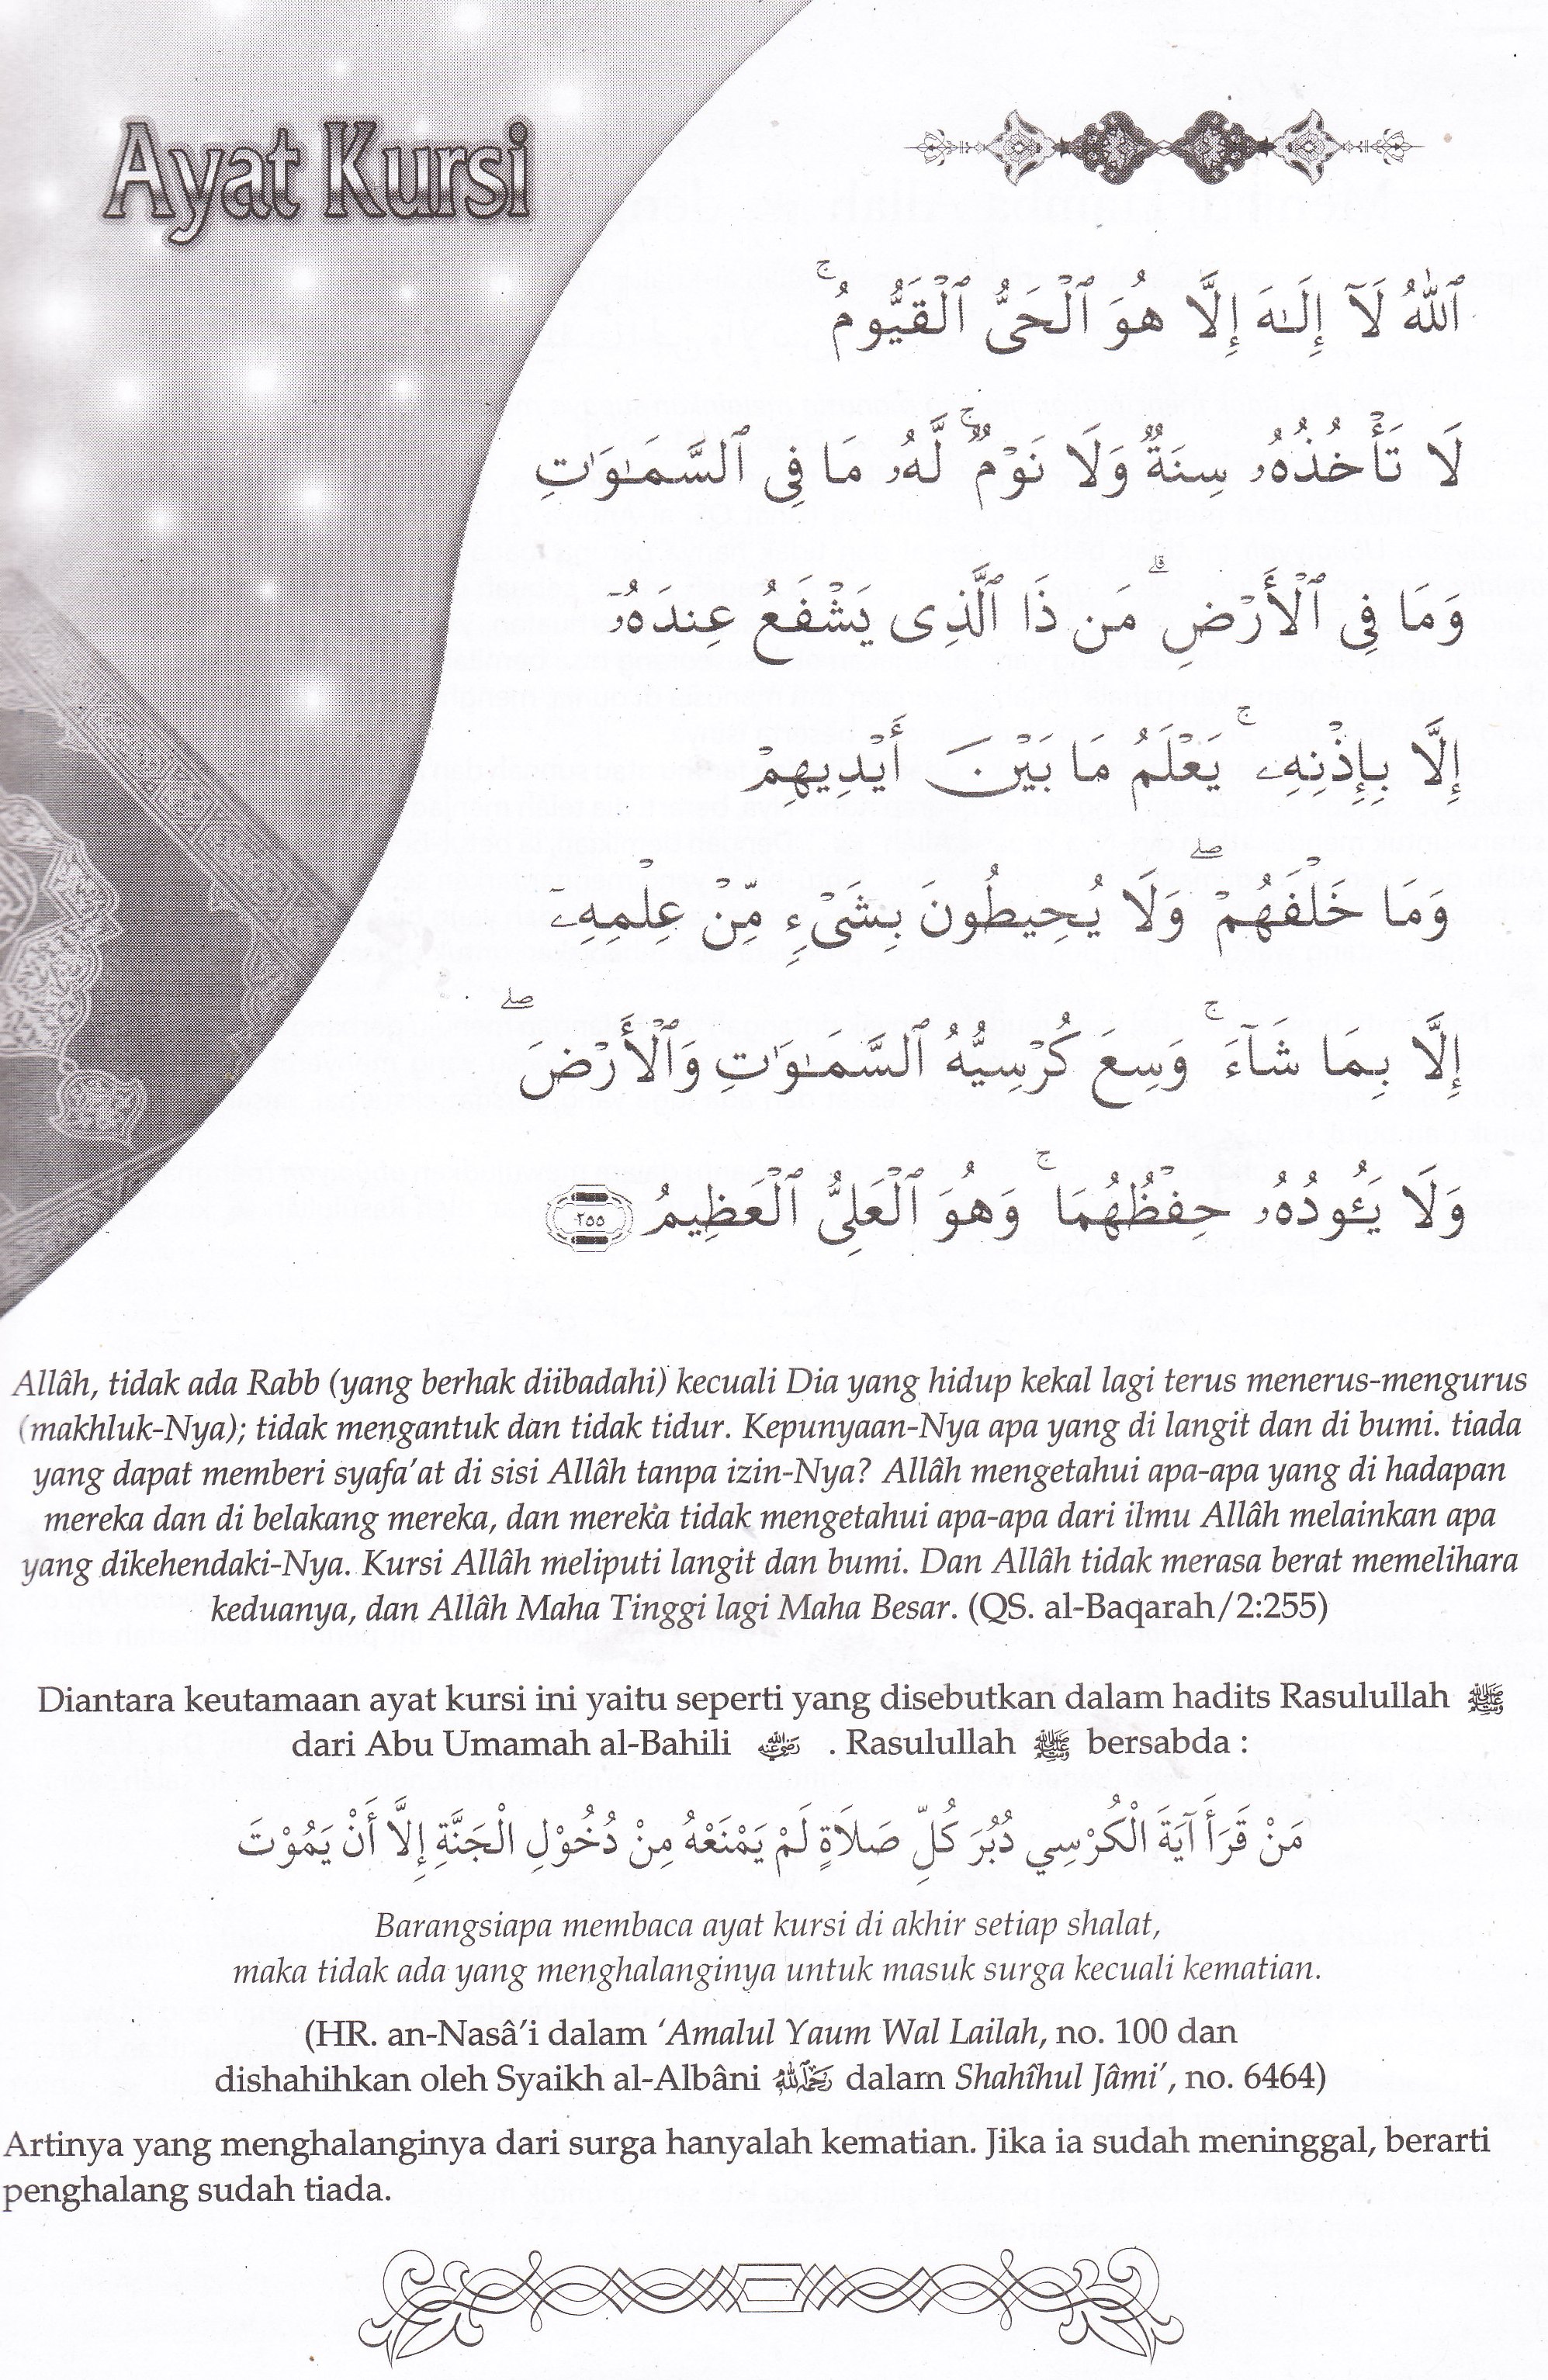 Ayat Kursi
ٱللَّهُ لَآ إِلَـٰهَ إِلَّا هُوَ ٱلْحَىُّ ٱلْقَيُّومُ ۚ
لَا تَأْخُذُهُۥ سِنَةٌ وَلَا نَوْمٌ ۚ لَّهُۥ مَا فِى ٱلسَّمَـٰوَٰتِ
وَمَا فِى ٱلْأَرْضِ ۗ مَن ذَا ٱلَّذِى يَشْفَعُ عِندَهُۥٓ
إِلَّا بِإِذْنِهِۦ ۚ يَعْلَمُ مَا بَيْنَ أَيْدِيهِمْ
وَمَا خَلْفَهُمْ ۖ وَلَا يُحِيطُونَ بِشَىْءٍ مِّنْ عِلْمِهِۦٓ
إِلَّا بِمَا شَآءَ ۚ وَسِعَ كُرْسِيُّهُ ٱلسَّمَـٰوَٰتِ وَٱلْأَرْضَ ۖ
وَلَا يَـُٔودُهُۥ حِفْظُهُمَا ۚ وَهُوَ ٱلْعَلِىُّ ٱلْعَظِيمُ ٢٥٥
Allâh, tidak ada Rabb (yang berhak diibadahi) kecuali Dia yang hidup kekal lagi terus menerus-mengurus
(makhluk-Nya); tidak mengantuk dan tidak tidur. Kepunyaan-Nya apa yang di langit dan di bumi. tiada
yang dapat memberi syafa'at di sisi Allâh tanpa izin-Nya? Allâh mengetahui apa-apa yang di hadapan
mereka dan di belakang mereka, dan mereka tidak mengetahui apa-apa dari ilmu Allâh melainkan apa
yang dikehendaki-Nya. Kursi Allâh meliputi langit dan bumi. Dan Allâh tidak merasa berat memelihara
keduanya, dan Allâh Maha Tinggi lagi Maha Besar. (QS. al-Baqarah/2:255)
Diantara keutamaan ayat kursi ini yaitu seperti yang disebutkan dalam hadits Rasulullah ﷺ
dari Abu Umamah al-Bahili رضي الله عنه . Rasulullah ﷺ bersabda :
مَنْ قَرَأَ آيَةَ الْكُرْسِي دُبُرَ كُلِّ صَلاَةٍ لَمْ يَمْنَعْهُ مِنْ دُخُوْلِ الْجَنَّةِ إِلاَّ أَنْ يَمُوْتَ
Barangsiapa membaca ayat kursi di akhir setiap shalat,
maka tidak ada yang menghalanginya untuk masuk surga kecuali kematian.
(HR. an-Nasâ'i dalam 'Amalul Yaum Wal Lailah, no. 100 dan
dishahihkan oleh Syaikh al-Albâni رحمه الله dalam Shahîhul Jâmi', no. 6464)
Artinya yang menghalanginya dari surga hanyalah kematian. Jika ia sudah meninggal, berarti
penghalang sudah tiada.